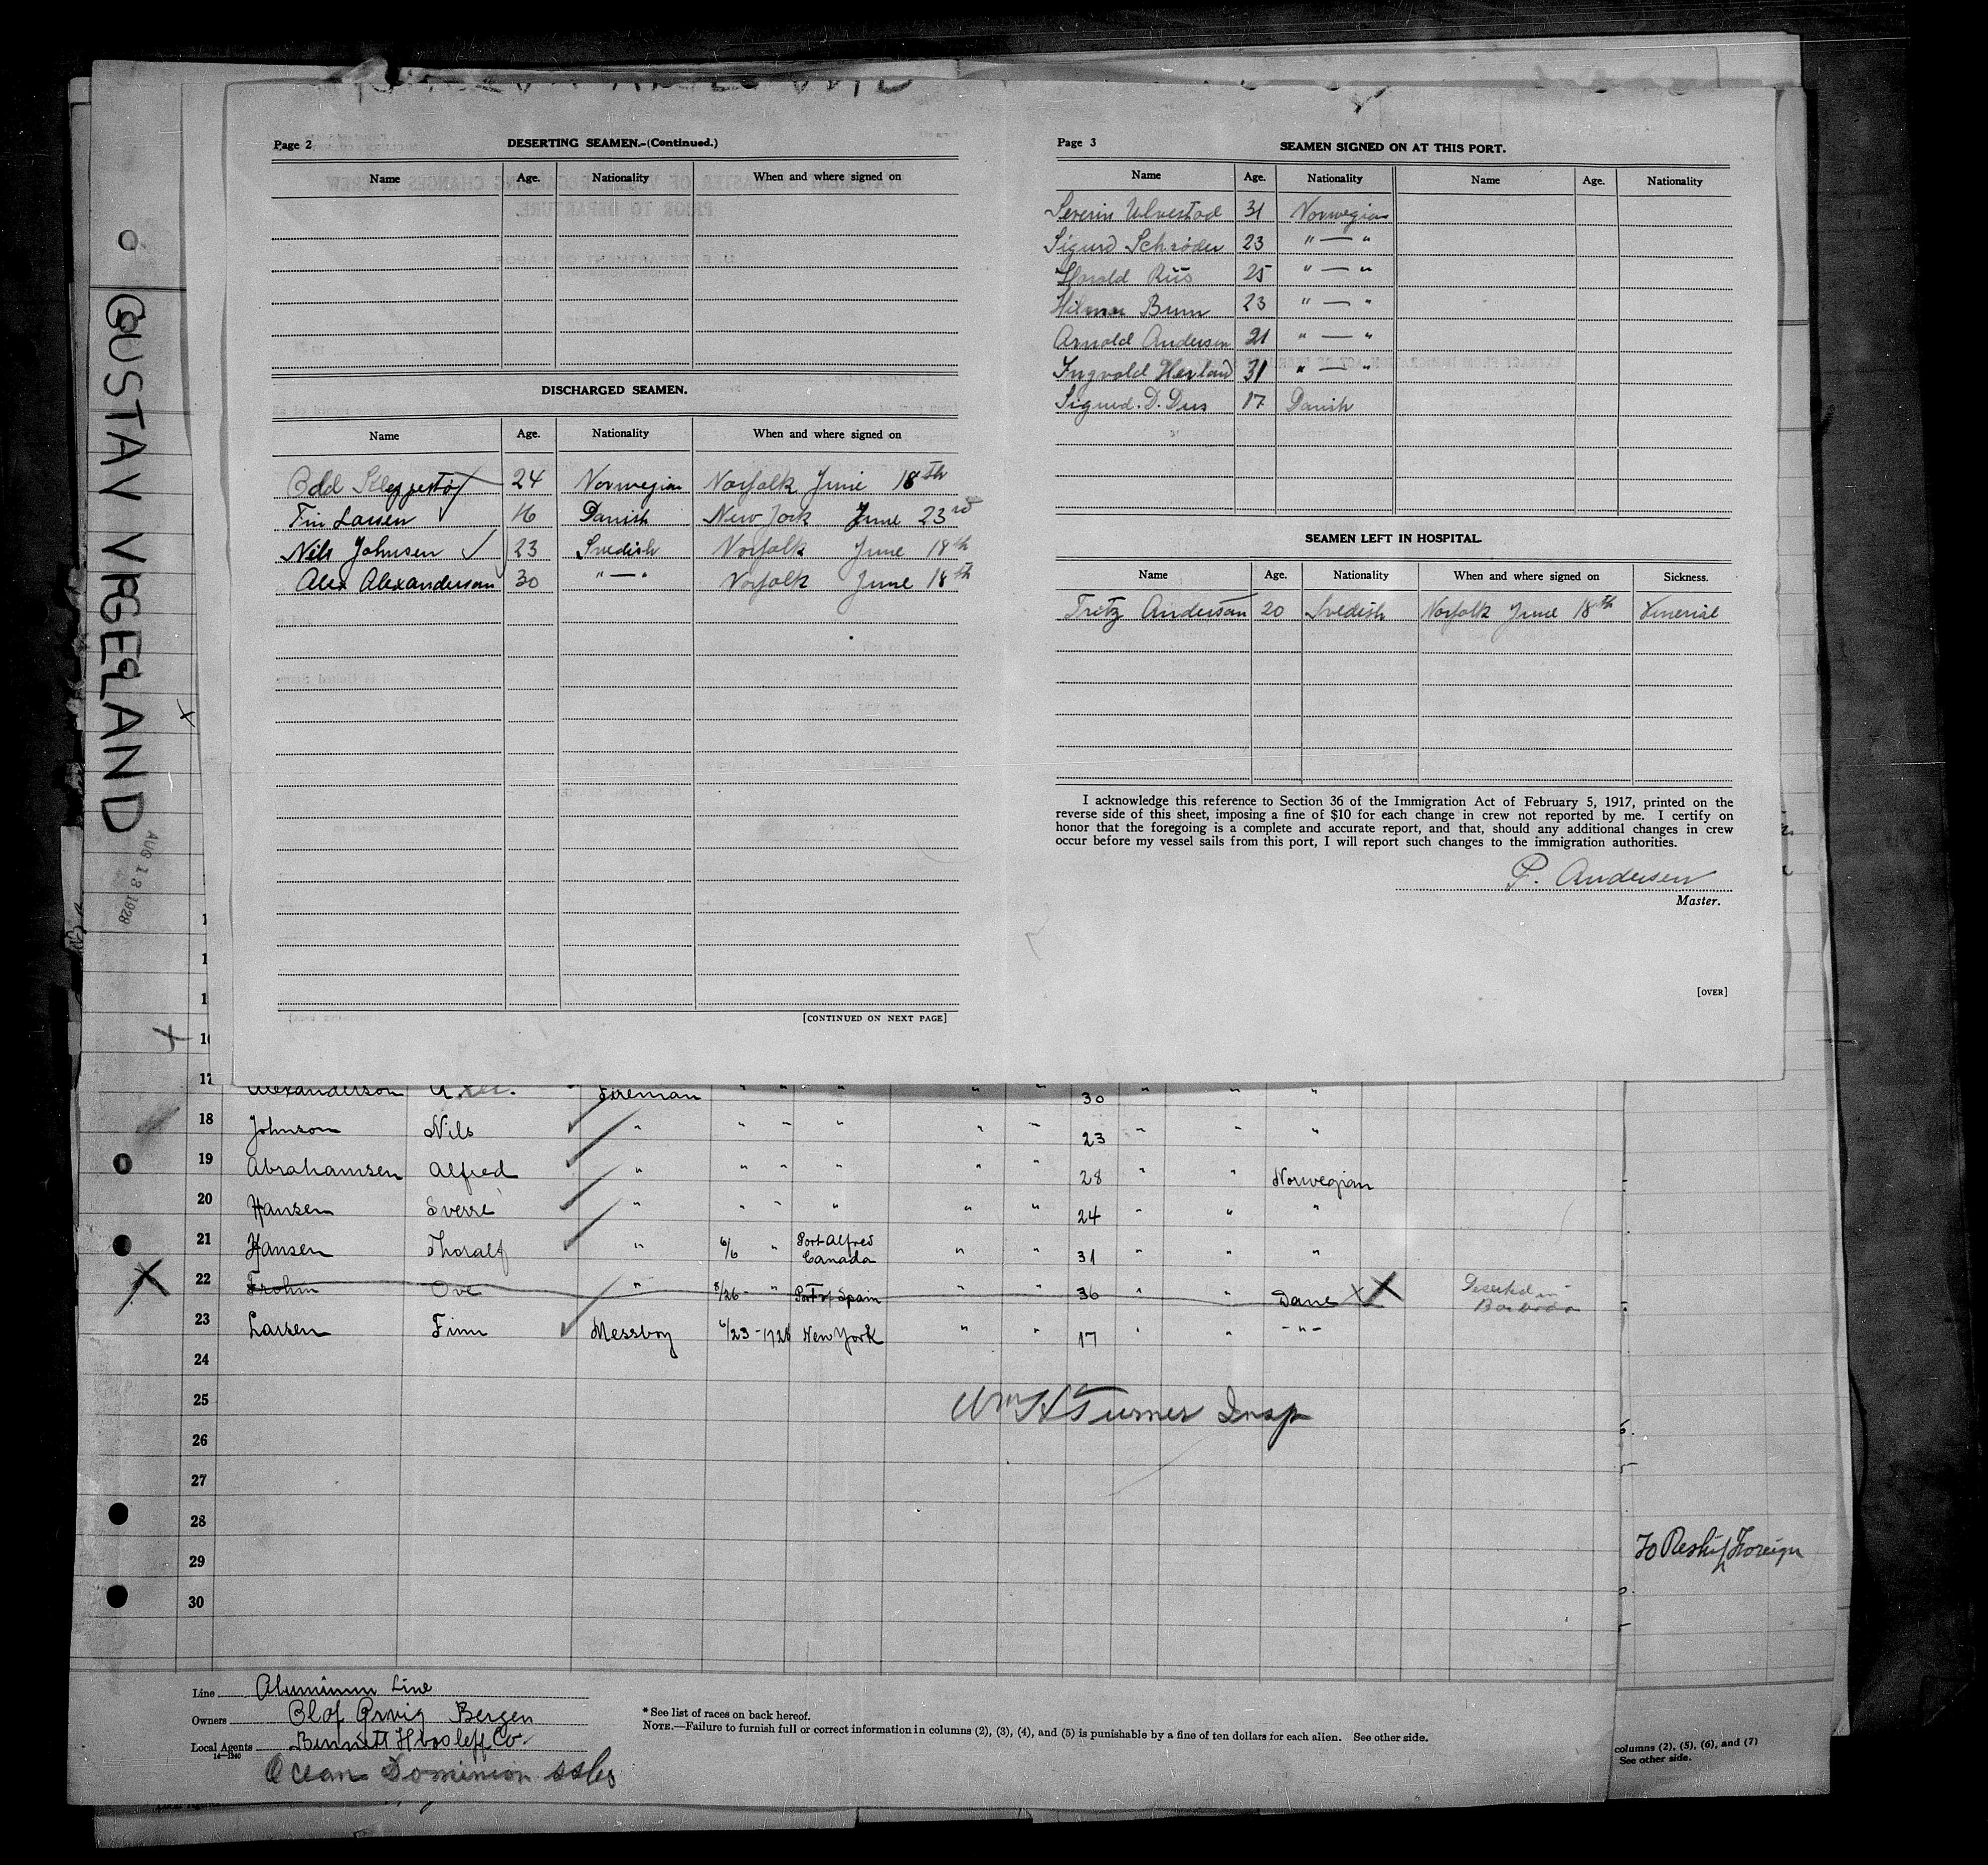 GUSTAV VIGELAND
AUG 13 1928
Page 2
DESERTING SEAMEN.-(Continued.)
Name Age. Nationality When and where signed on
DISCHARGED SEAMEN.
Name Age. Nationality When and where signed on
Odd 24 Norwegian Norfolk June 18th
Fin Larsen 16 Danish New York June 23rd
Nils Johnsen 23 Swedish Norfolk June 18th
Alex Alexanderson 30 " — " Norfolk June 18th
[CONTINUED ON NEXT PAGE]
Page 3
SEAMEN SIGNED ON AT THIS PORT.
Name Age. Nationality Name Age. Nationality
Severin Ulvestad 31 Norwegian
Sigurd Schrøder 23 " — "
Harald Riis 25 " — "
Hilmar Bunn 23 " — "
Arnold Andersen 21 " — "
Ingvald Hexland 31 " — "
Sigurd. D. Dus 17 Danish
SEAMEN LEFT IN HOSPITAL.
Name Age. Nationality When and where signed on Sickness.
Fritz Anderson 20 Svedish Norfolk June 18th Venerial
I acknowledge this reference to Section 36 of the Immigration Act of February 5, 1917, printed on the
reverse side of this sheet, imposing a fine of $10 for each change in crew not reported by me. I certify on
honor that the foregoing is a complete and accurate report, and that, should any additional changes in crew
occur before my vessel sails from this port, I will report such changes to the immigration authorities.
P. Andersen
Master.
[OVER]
17 Alexanderson Fireman " " " " " 30 " " "
18 Johnson Nils " " " " " " 23 " " "
19 Abrahamsen Alfred " " " " " " 28 " " Norwegian
20 Hansen Sverre " " " " " " 24 " " "
21 Hansen Thoralf " 6/6 " Port Alfred Canada " " 31 " " "
22 Frohm Ove " 3/26 - " Port of Spain " " 36 " " Dane Deserted in
23 Larsen Finn Messboy 6/23 - 1928 New York " " 17 " " - " -
24
25
Wm H Turner Insp
26
27
28
29
30
To Reship Foreign
Line Aluminum Line
Owners Olaf Ørvig Bergen
Local Agents Bennett Hvoslef Co.
14—1240
Ocean Dominion SSCo
* See list of races on back hereof.
NOTE.—Failure to furnish full or correct information in columns (2), (3), (4), and (5) is punishable by a fine of ten dollars for each alien. See other side.
columns (2), (5), (6), and (7)
See other side.